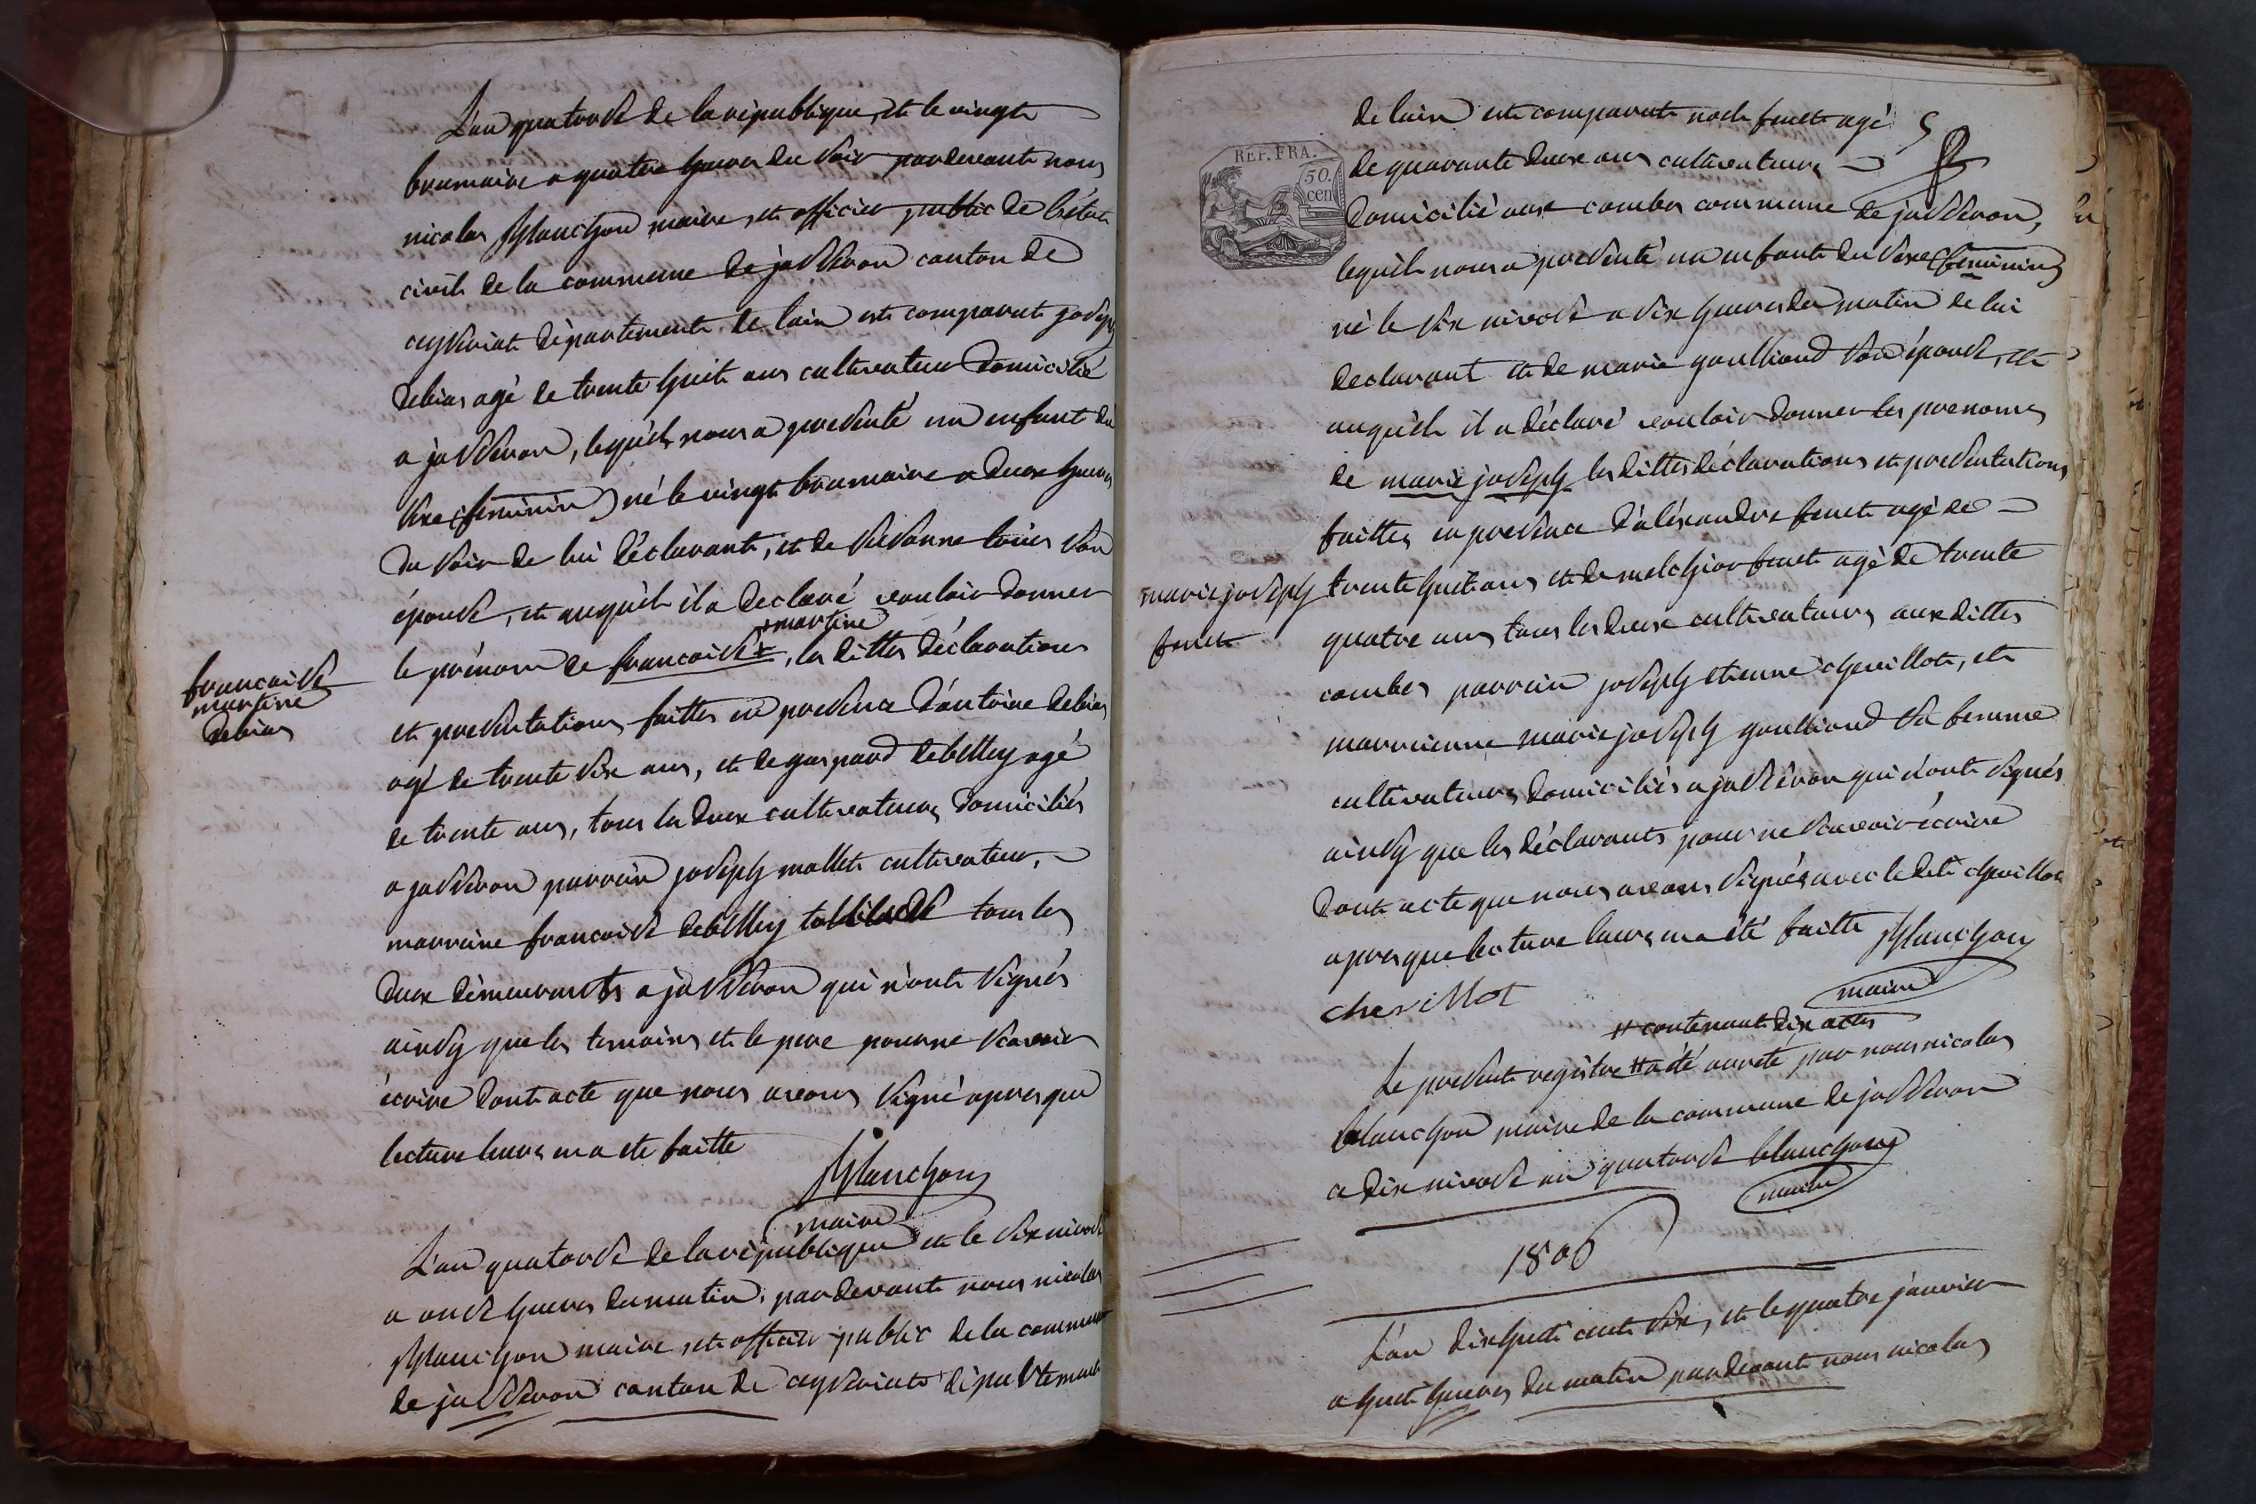 L'an quatorse de la république, et le vingt
brumaire a quatre heures du soir pardevant nous
nicolas Blanchon maire, et officier public de l'état
civil de la commune de jasseron canton de
ceyseriat département de l'ain est comparut joseph
debias agé de trente huit ans cultivateur domicilié
a jasseron, lequél nous a presenté un enfant du
sexe (feminin) né le vingt brumaire a deux heures
du soir de lui déclarant, et de susanne son
épouse, et auquél il a declaré vouloir donner
+ martine
le prénom de francoise +, les dittes déclarations
et presentations faittes en presence d'antoine debias
agé de trente six ans, et de gaspard debelley agé
de trente ans, tous les deux cultivateurs domiciliés
a jasseron parrain joseph mallet cultivateur,
marraine francoise debelley tous les
deux démeurants a jasseron qui n'ont signés
ainsy que les temoins et le pere pour ne scavoir
écrire dont acte que nous avons signé apres que
lecture leurs en a ete faitte
Blanchon
maire
francoise
martine
debias
L'an quatorse de la république et le six nivose
a onse heures du matin, pardevant nous nicolas
Blanchon maire, et officier public de la commune
de jasseron canton de ceyseriat département
5
REP. FRA.
50.
cen
de l'ain est comparut noel feuet agé
de quarante deux ans cultivateur
domicilié aux combes commune de jasseron,
lequél nous a presenté un enfant du sexe (feminin)
né le six nivose a six heures du matin de lui
declarant et de marie goulliond son épouse, et
auquél il a déclaré vouloir donner les prenoms
de marie joseph les dittes déclarations et presentations
faittes en presence d'aléxandre feuet agé de
trente huit ans et de melchior feuet agé de trente
quatre ans tous les deux cultivateurs aux dittes
combes parrain joseph etienne chevillot, et
marraienne marie joseph goulliond sa femme
cultivateurs domiciliés a jasseron qui n'ont signés
ainsy que les déclarants pour ne scavoir écrire
dont acte que nous avons signés avec le dit chevillot
apres que lecture leurs en a été faitte Blanchon
maire
chevillot
marie joseph
feuet
# contenant dix actes
Le present registre # a été arreté par nous nicolas
blanchon maire de la commune de jasseron
ce dix nivose an quatorse blanchon
maire
1806
L'an dix huit cent six, et le quatre janvier
a huit heures du matin pardevant nous nicolas